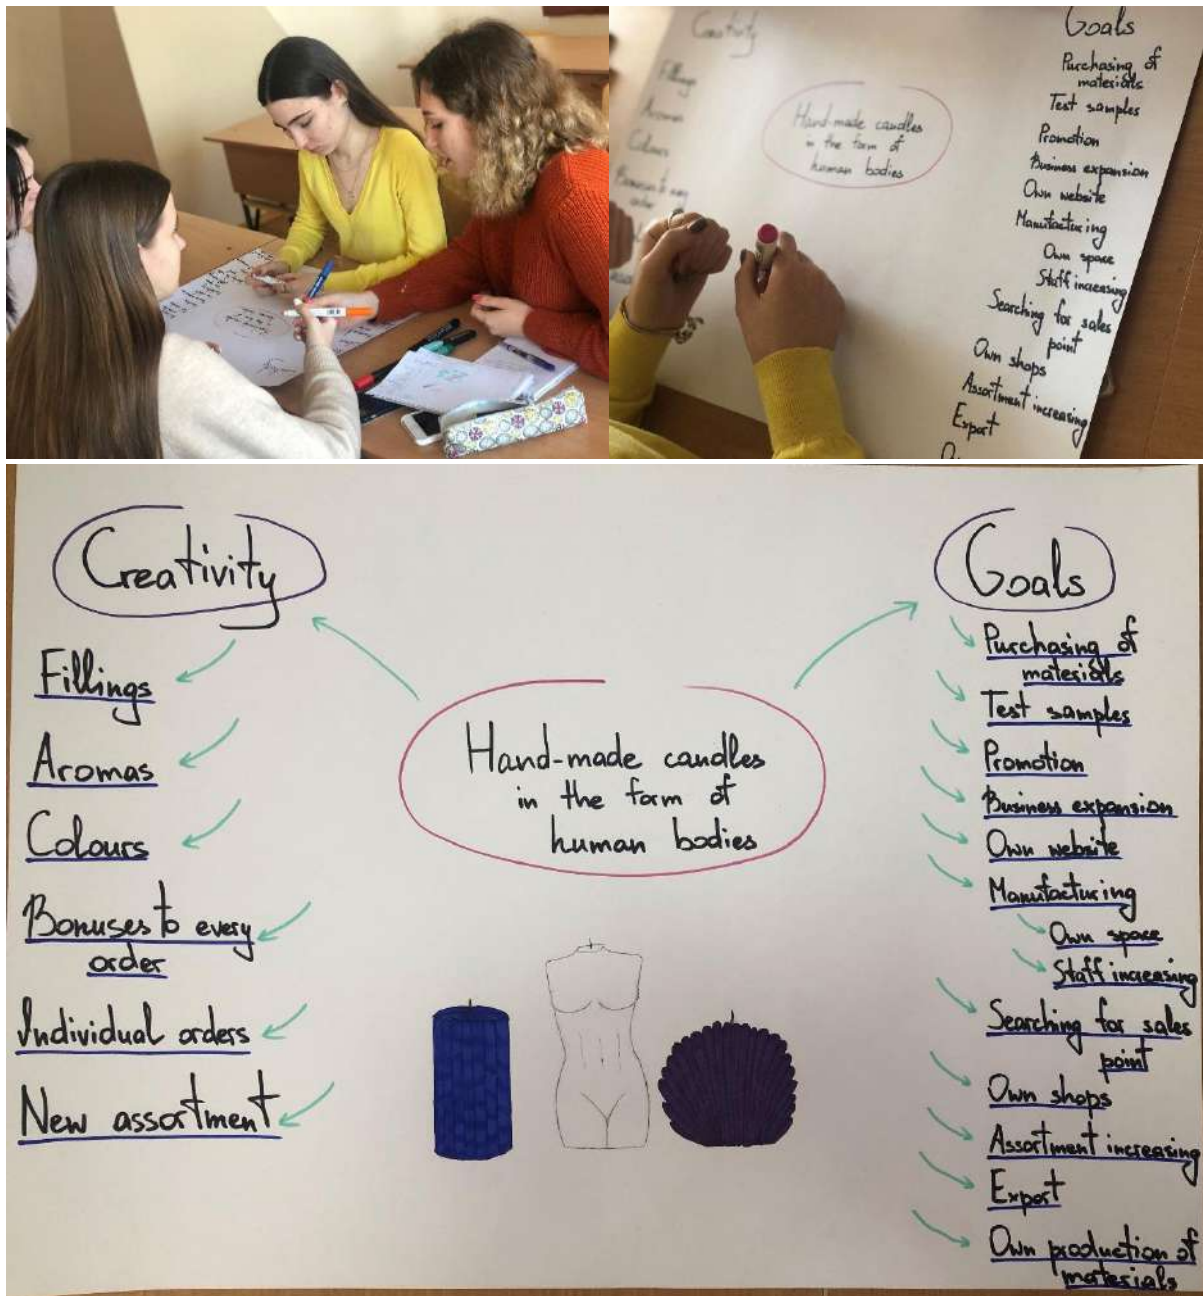 Creativity
Goals
Purchasing of
materials
Fillings
Test samples
Aromas
Hand-made candles
in the form of
human bodies
Promotion
Colours
Business expansion
Own website
Bonuses to every
order
Manufacturing
Own space
Staff increasing
Searching for sales
point
Own shops
Assortment increasing
Export
Creativity
Fillings
Aromas
Colours
Bonuses to every
order
Individual orders
New assortment
Hand-made candles
in the form of
human bodies
Goals
Purchasing of
materials
Test samples
Promotion
Business expansion
Own website
Manufacturing
Own space
Staff increasing
Searching for sales
point
Own shops
Assortment increasing
Export
Own production of
materials